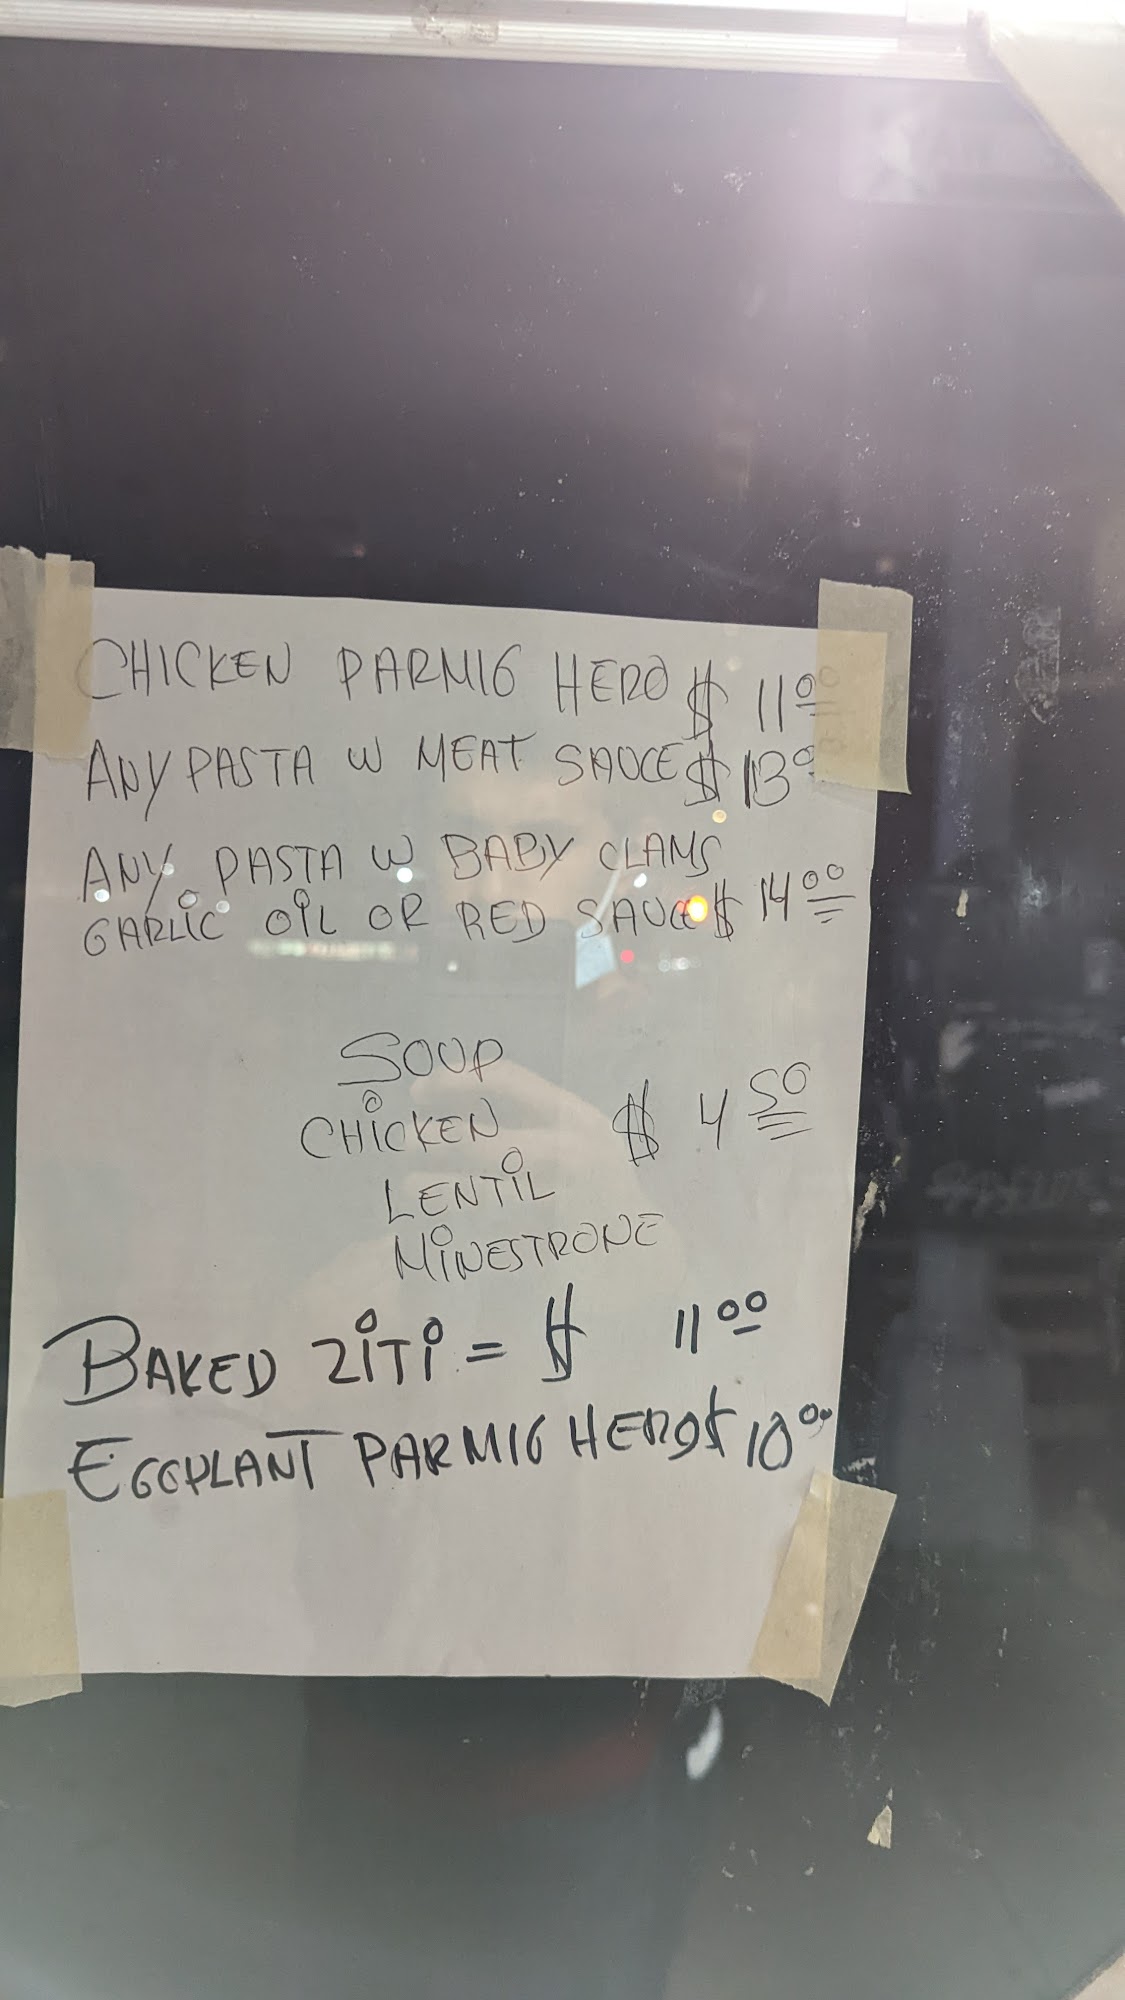 CHICKEN PARMIG HERO $ 11.00
ANY PASTA W MEAT SAUCE $ 13.00
ANY PASTA W BABY CLAMS
GARLIC OIL OR RED SAUCE $ 14.00
SOUP
CHICKEN $ 4.50
LENTIL
MINESTRONE
BAKED ZITI = $ 11.00
EGGPLANT PARMIG HERO $ 10.00